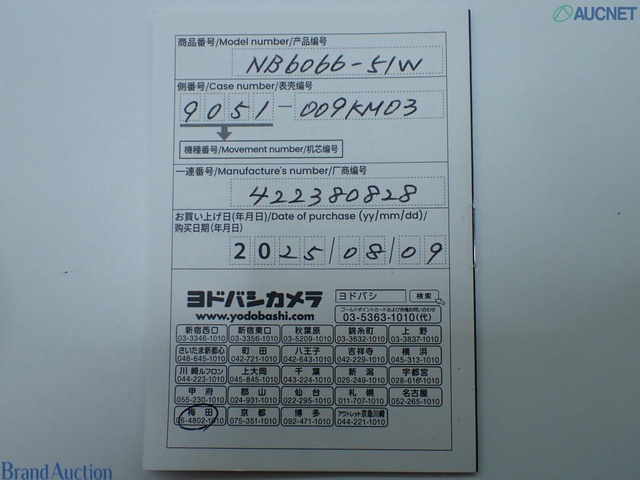 AUCNET
商品番号/Model number/产品编号
NB6066-51W
側番号/Case number/表壳编号
9051-009KM03
機種番号/Movement number/机芯编号
一連番号/Manufacture's number/厂商编号
422380828
お買い上げ日(年月日)/Date of purchase (yy/mm/dd)/
购买日期(年月日)
2025/08/09
ヨドバシカメラ
www.yodobashi.com
ヨドバシ 検索
ゴールドポイントカードおよび各種お問い合わせ
03-5363-1010(代)
新宿西口 新宿東口 秋葉原 錦糸町 上野
03-3346-1010 03-3356-1010 03-5209-1010 03-3632-1010 03-3837-1010
さいたま新都心 町田 八王子 吉祥寺 横浜
048-645-1010 042-721-1010 042-643-1010 0422-29-1010 045-313-1010
川崎ルフロン 上大岡 千葉 新潟 宇都宮
044-223-1010 045-845-1010 043-224-1010 025-249-1010 028-616-1010
甲府 郡山 仙台 札幌 名古屋
055-230-1010 024-931-1010 022-295-1010 011-707-1010 052-265-1010
梅田 京都 博多 アウトレット京急川崎
06-4802-1010 075-351-1010 092-471-1010 044-221-1010
Brand Auction